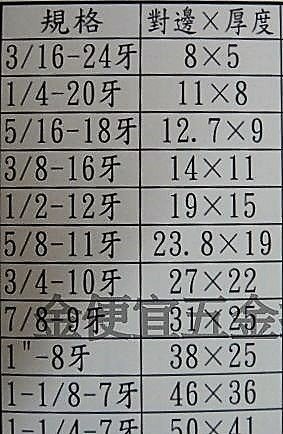 規格 對邊×厚度
3/16-24牙 8×5
1/4-20牙 11×8
5/16-18牙 12.7×9
3/8-16牙 14×11
1/2-12牙 19×15
5/8-11牙 23.8×19
3/4-10牙 27×22
7/8-9牙 31×25
1"-8牙 38×25
1-1/8-7牙 46×36
1-1/4-7牙 50×41
金便宜五金